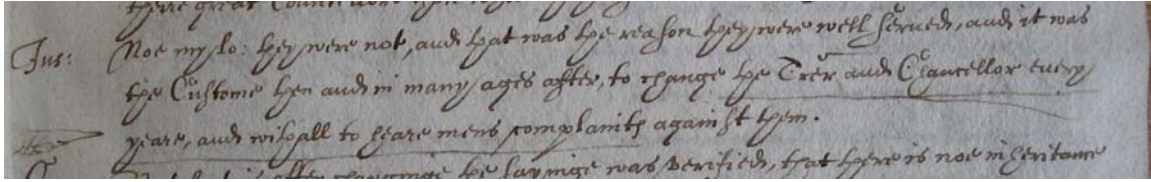 there great Councellors
Jus: Noe my lo: they were not, and that was the reason they were well served, and it was
the Custome then and in many ages after, to change the Trer and Chancellor every
yeare, and withall to heare mens complaints against them.
after changinge the sayinge was verified, that there is noe inheritance